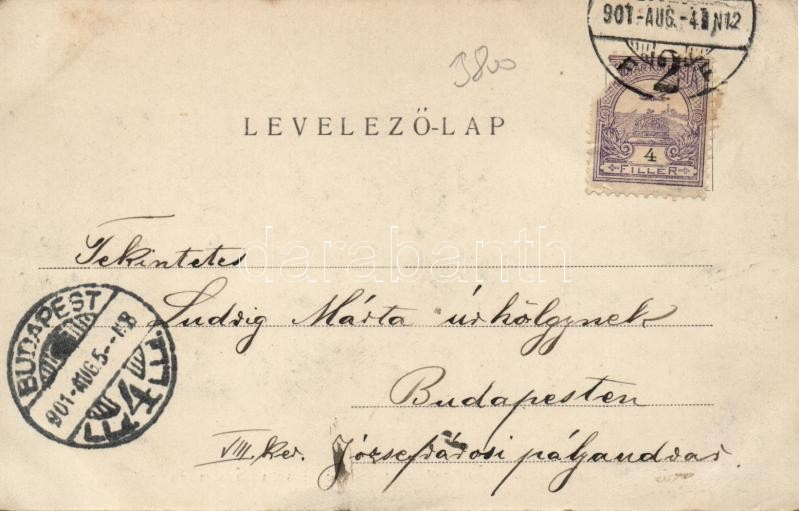 901-AUG.-4 N12
2
3800
LEVELEZŐ-LAP
4
FILLÉR
darabanth
Tekintetes
Ludvig Márta úrhölgynek
Budapesten
VIII. ker. Józsefvárosi pályaudvar
BUDAPEST
901-AUG.5--N8
4